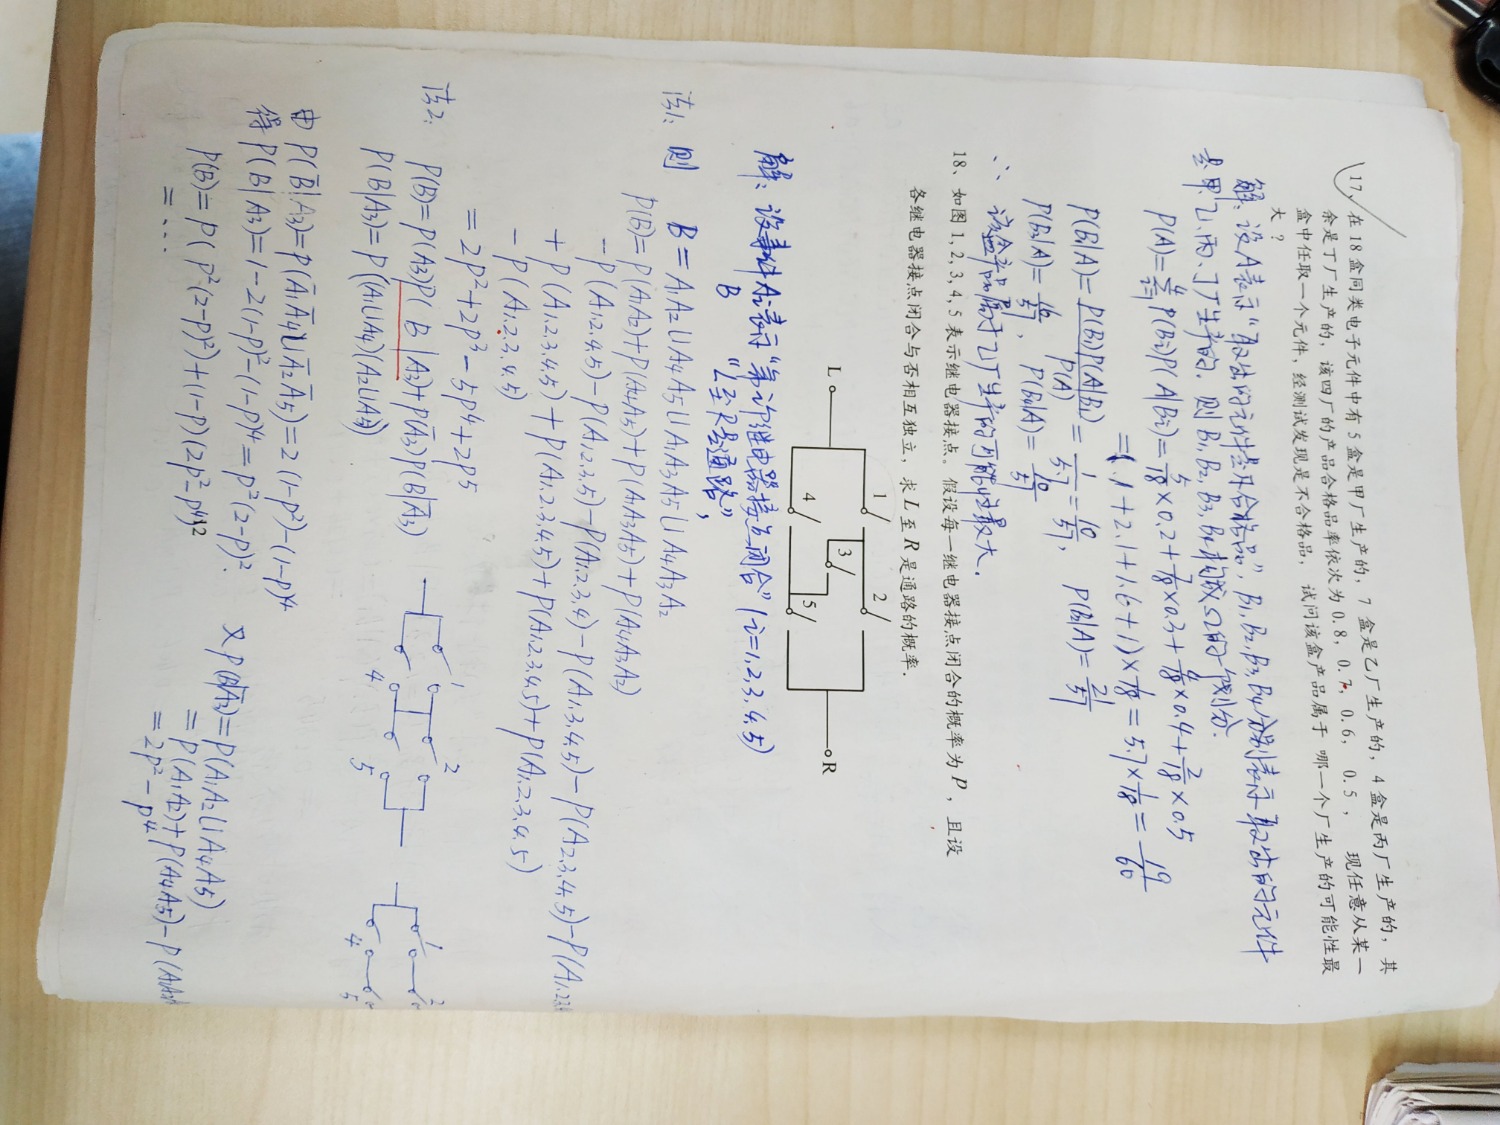 17、在18盒同类电子元件中有5盒是甲厂生产的，7盒是乙厂生产的，4盒是丙厂生产的，其
余是丁厂生产的，该四厂的产品合格品率依次为0.8，0.7，0.6，0.5，现任意从某一
盒中任取一个元件，经测试发现是不合格品，试问该盒产品属于哪一个厂生产的可能性最
大？
解：设A表示“取出的元件是不合格品”，B₁,B₂,B₃,B₄分别表示取出的元件
是甲、乙、丙、丁厂生产的，则B₁,B₂,B₃,B₄构成Ω的一个划分.
P(A)=Σ P(Bi)P(A|Bi)=5/18×0.2+7/18×0.3+4/18×0.4+2/18×0.5
=(1+2.1+1.6+1)×1/18=5.7×1/18=19/60
P(B₁|A)=P(B₁)P(A|B₁)/P(A)=1/5.7=10/57, P(B₂|A)=21/57
P(B₃|A)=16/57, P(B₄|A)=10/57
∴ 该盒产品属于乙厂生产的可能性最大.
18、如图1, 2, 3, 4, 5表示继电器接点。假设每一继电器接点闭合的概率为P，且设
各继电器接点闭合与否相互独立，求L至R是通路的概率.
1
2
3
L
R
4
5
解：设事件Ai表示“第i个继电器接点闭合”(i=1,2,3,4,5)
B “L至R是通路”,
法1: 则 B=A₁A₂∪A₄A₅∪A₁A₃A₅∪A₄A₃A₂
P(B)=P(A₁A₂)+P(A₄A₅)+P(A₁A₃A₅)+P(A₄A₃A₂)
-P(A1,2,4,5)-P(A1,2,3,5)-P(A1,2,3,4)-P(A1,3,4,5)-P(A2,3,4,5)-P(A1,2,3,4
+P(A1,2,3,4,5)+P(A1,2,3,4,5)+P(A1,2,3,4,5)+P(A1,2,3,4,5)
-P(A1,2,3,4,5)
=2p²+2p³-5p⁴+2p⁵
法2: P(B)=P(A₃)P(B|A₃)+P(Ā₃)P(B|Ā₃)
P(B|A₃)=P((A₁∪A₄)(A₂∪A₅))
1
2
4
5
1
2
4
5
由P(B̄|A₃)=P(Ā₁Ā₄∪Ā₂Ā₅)=2(1-p)²-(1-p)⁴
得P(B|A₃)=1-2(1-p)²-(1-p)⁴=p²(2-p)². 又P(B|Ā₃)=P(A₁A₂∪A₄A₅)
=P(A₁A₂)+P(A₄A₅)-P(A₁A₂A
=2p²-p⁴
P(B)=P(p²(2-p)²)+(1-p)(2p²-p⁴)
=…